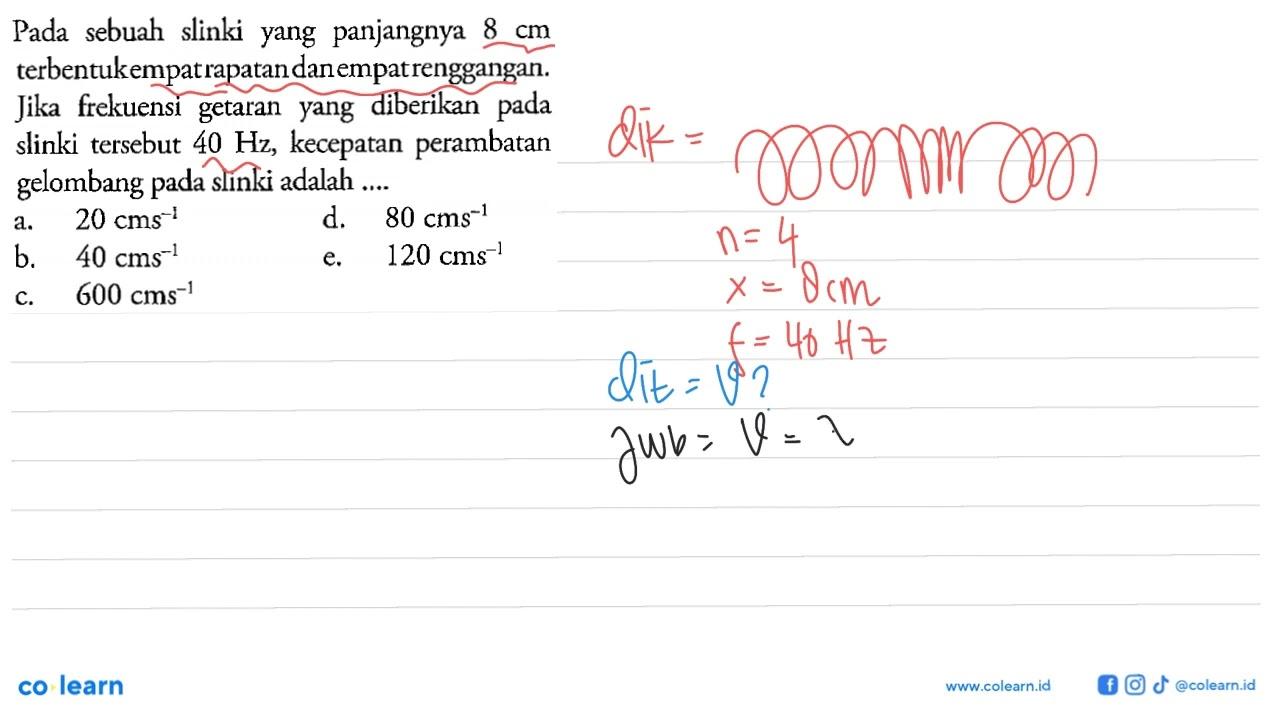 Pada sebuah slinki yang panjangnya 8 cm
terbentuk empat rapatan dan empat renggangan.
Jika frekuensi getaran yang diberikan pada
slinki tersebut 40 Hz, kecepatan perambatan
gelombang pada slinki adalah ....
a. 20 cms⁻¹ d. 80 cms⁻¹
b. 40 cms⁻¹ e. 120 cms⁻¹
c. 600 cms⁻¹
dik =
n = 4
x = 8 cm
f = 40 Hz
dit = v?
jwb = v = λ
co learn
www.colearn.id
@colearn.id